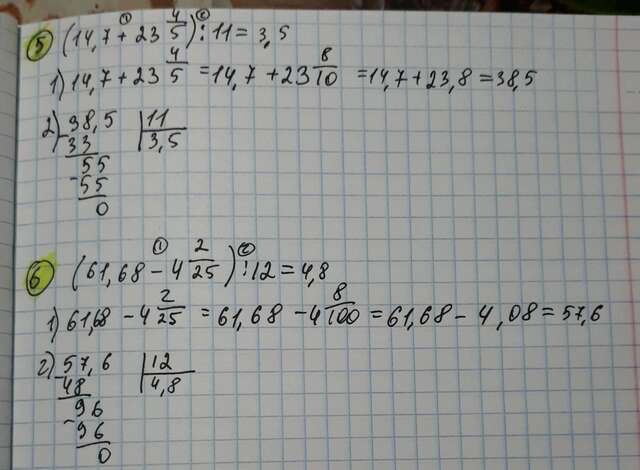 5 (14,7 + 23 4/5) : 11 = 3,5
1) 14,7 + 23 4/5 = 14,7 + 23 8/10 = 14,7 + 23,8 = 38,5
2) 38,5 | 11
- 33 | 3,5
55
- 55
0
6 (61,68 - 4 2/25) : 12 = 4,8
1) 61,68 - 4 2/25 = 61,68 - 4 8/100 = 61,68 - 4,08 = 57,6
2) 57,6 | 12
- 48 | 4,8
96
- 96
0